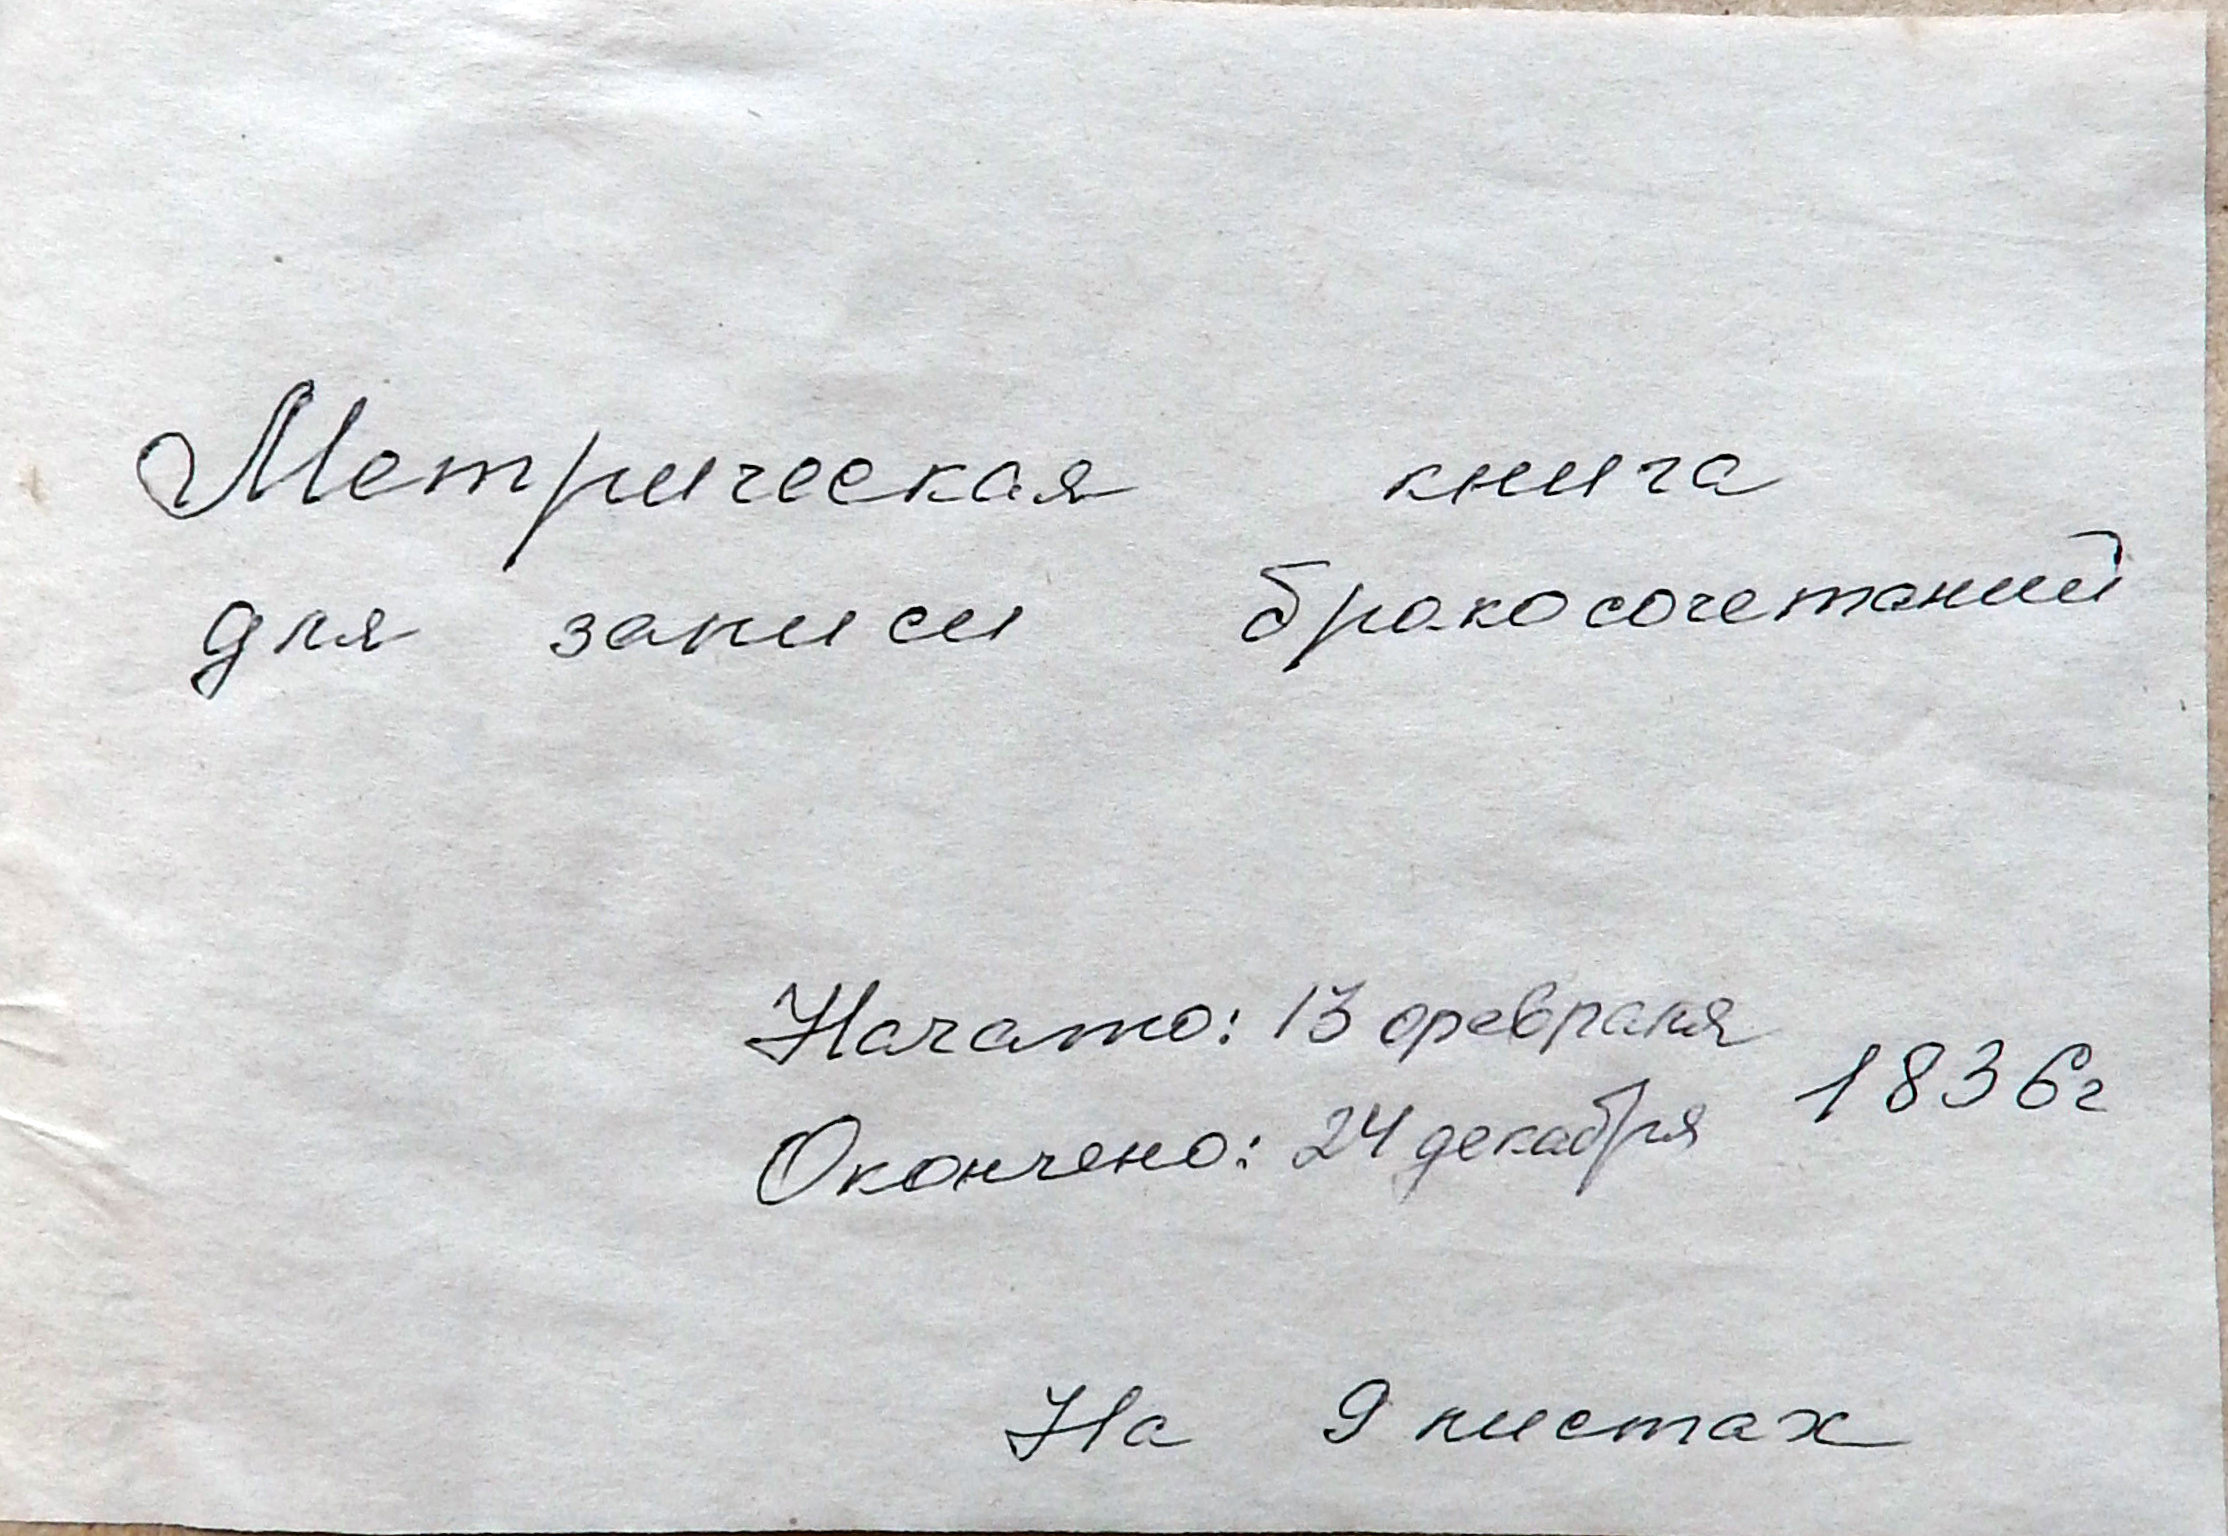 Метрическая книга
для записи бракосочетаний
Начато: 13 февраля
1836г
Окончено: 24 декабря
На 9 листах